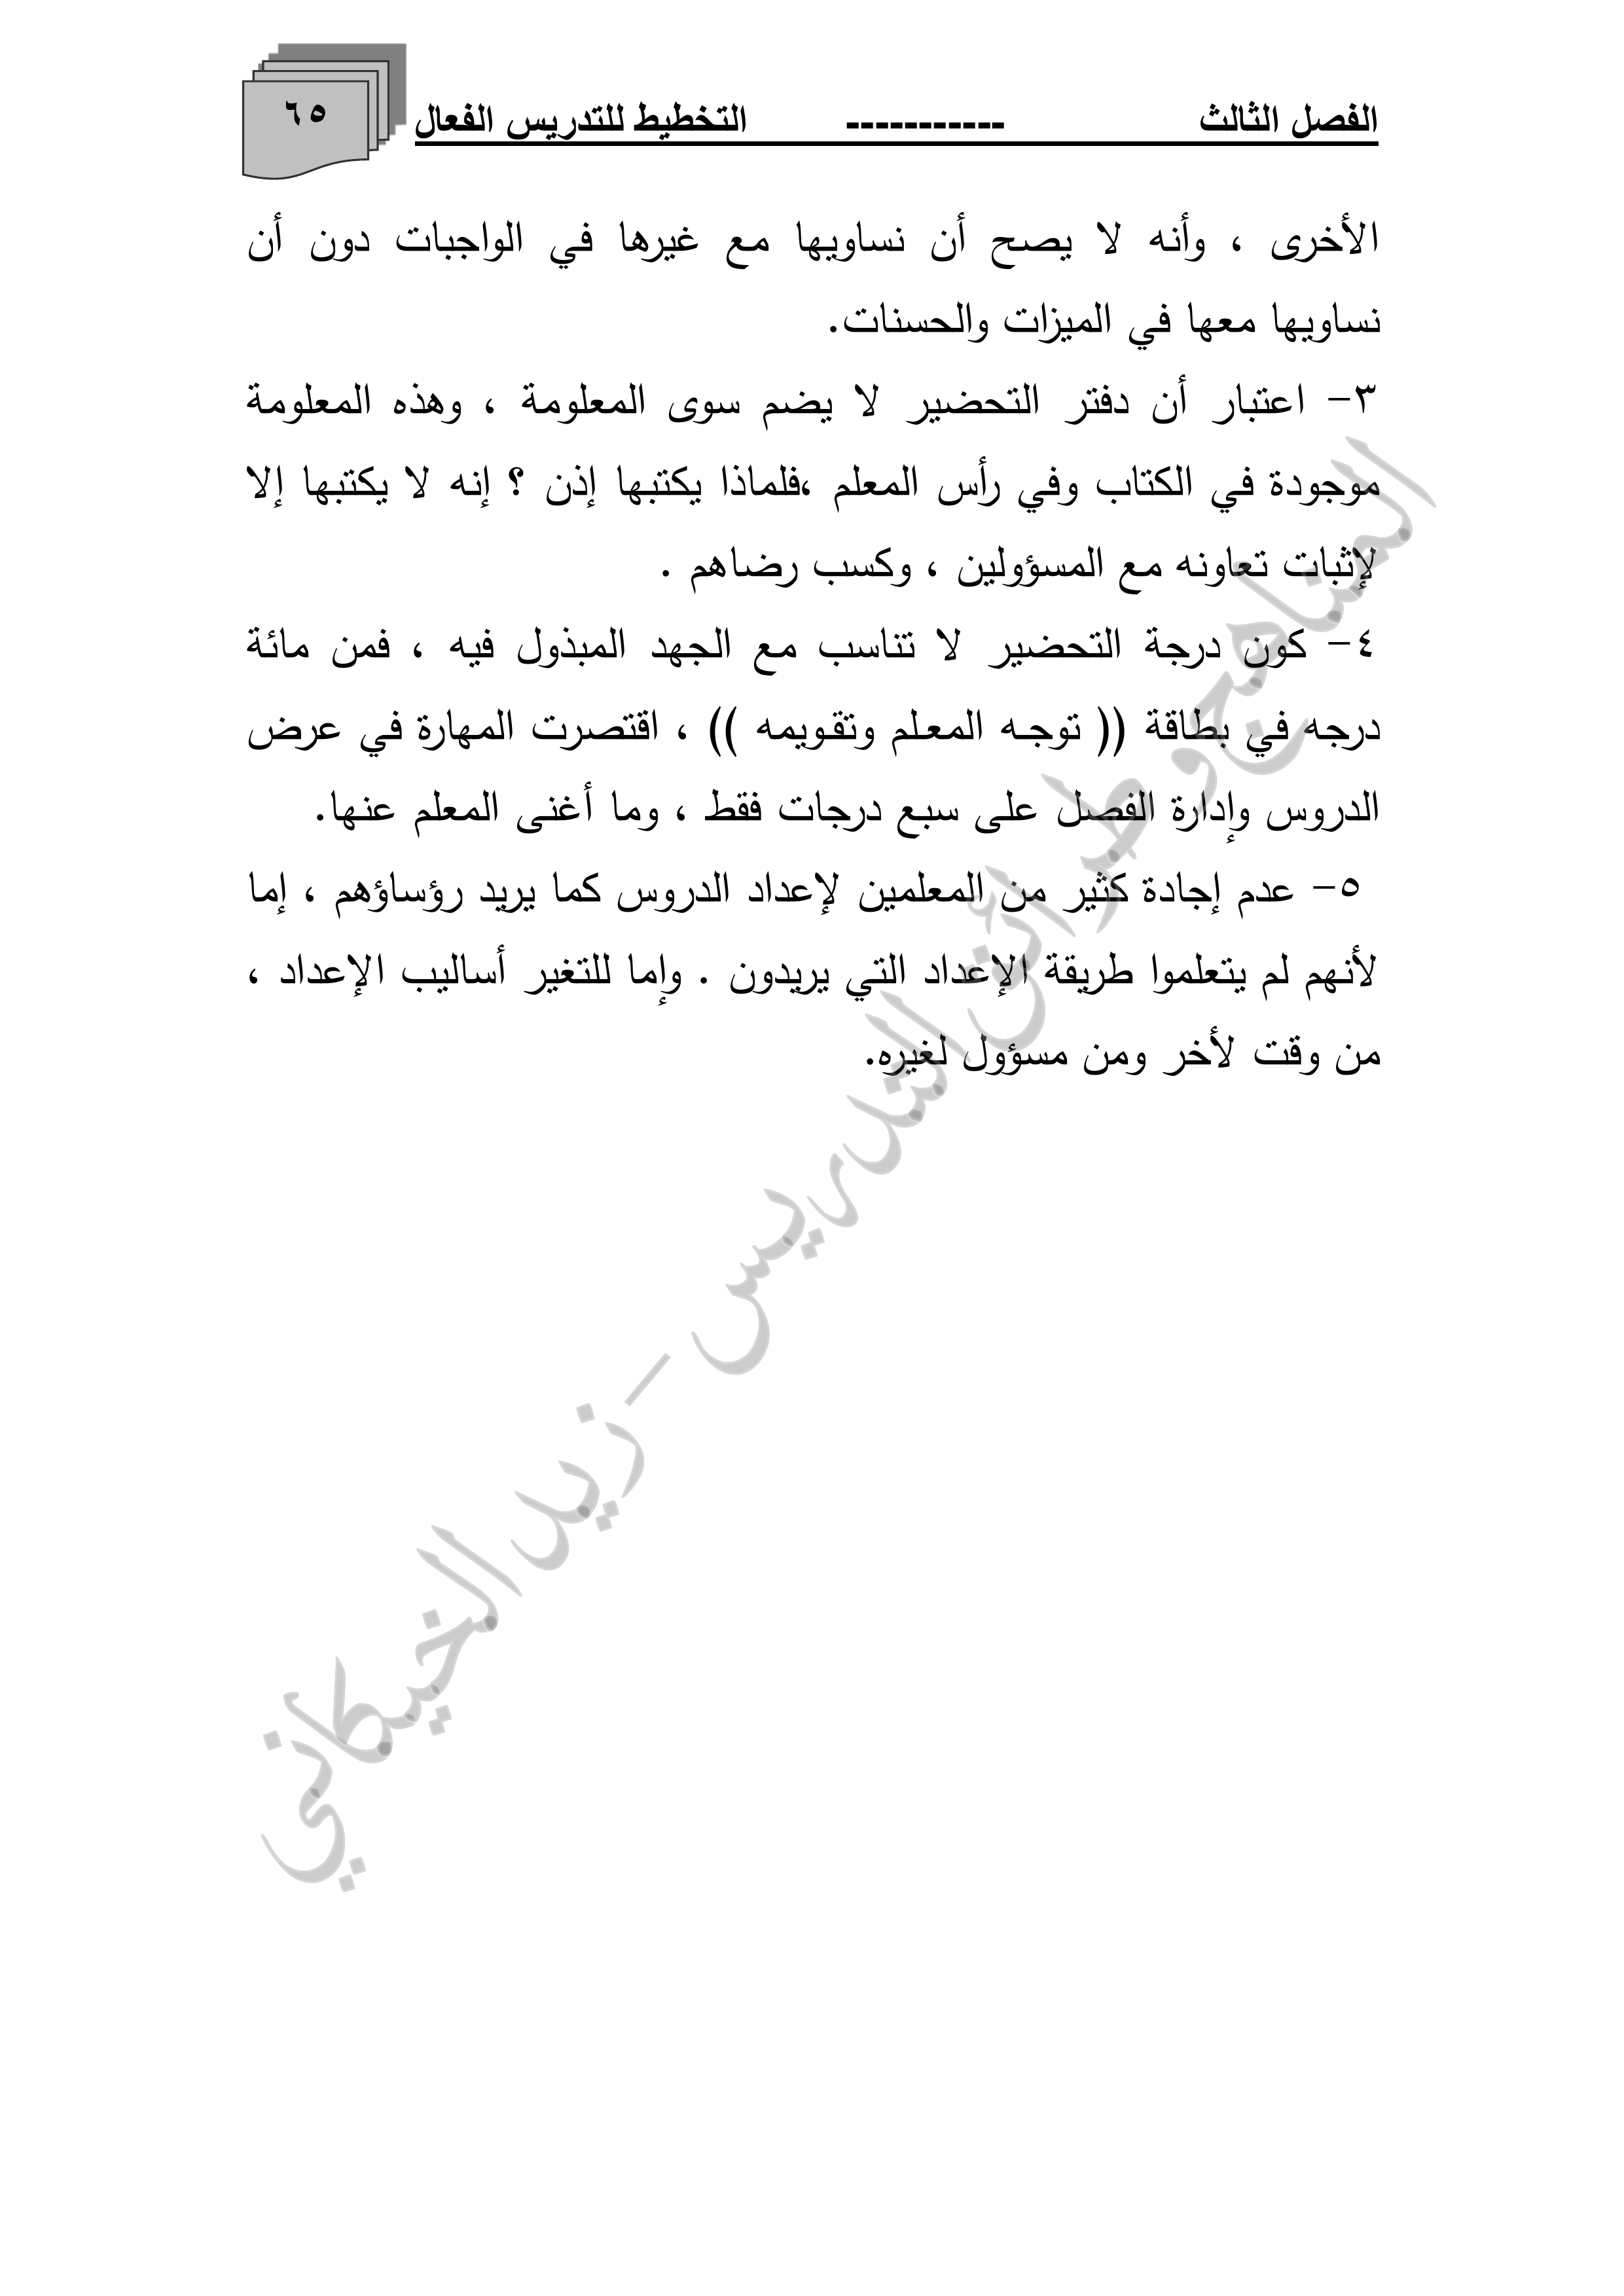 الفصل الثالث ----------- التخطيط للتدريس الفعال
٦٥
الأخرى ، وأنه لا يصح أن نساويها مع غيرها في الواجبات دون أن
نساويها معها في الميزات والحسنات.
٣- اعتبار أن دفتر التحضير لا يضم سوى المعلومة ، وهذه المعلومة
موجودة في الكتاب وفي رأس المعلم ،فلماذا يكتبها إذن ؟ إنه لا يكتبها إلا
لإثبات تعاونه مع المسؤولين ، وكسب رضاهم .
٤- كون درجة التحضير لا تناسب مع الجهد المبذول فيه ، فمن مائة
درجه في بطاقة (( توجه المعلم وتقويمه )) ، اقتصرت المهارة في عرض
الدروس وإدارة الفصل على سبع درجات فقط ، وما أغنى المعلم عنها.
٥- عدم إجادة كثير من المعلمين لإعداد الدروس كما يريد رؤساؤهم ، إما
لأنهم لم يتعلموا طريقة الإعداد التي يريدون . وإما للتغير أساليب الإعداد ،
من وقت لأخر ومن مسؤول لغيره.
المناهج وطرائق التدريس - زيد الخيكاني